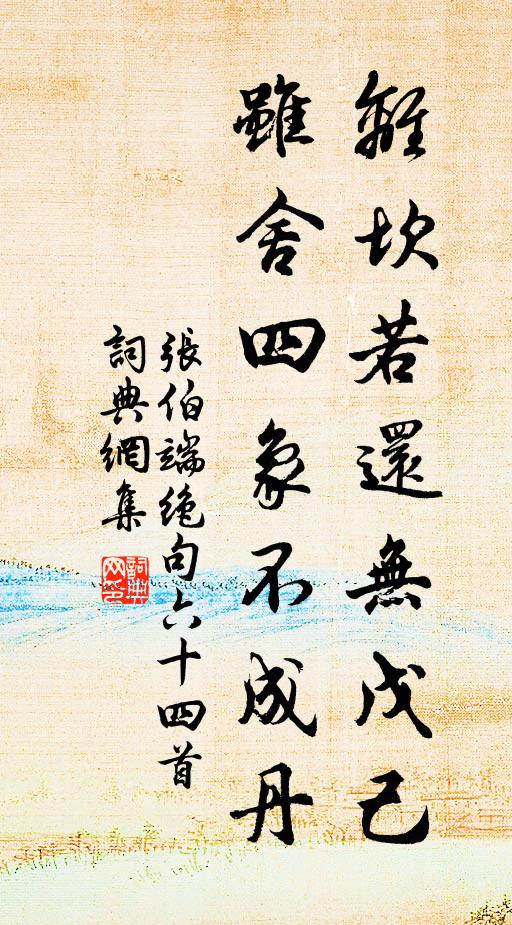 離坎若還無戊己
雖舍四象不成丹
張伯端絶句六十四首
詞典網集
詞典
网印